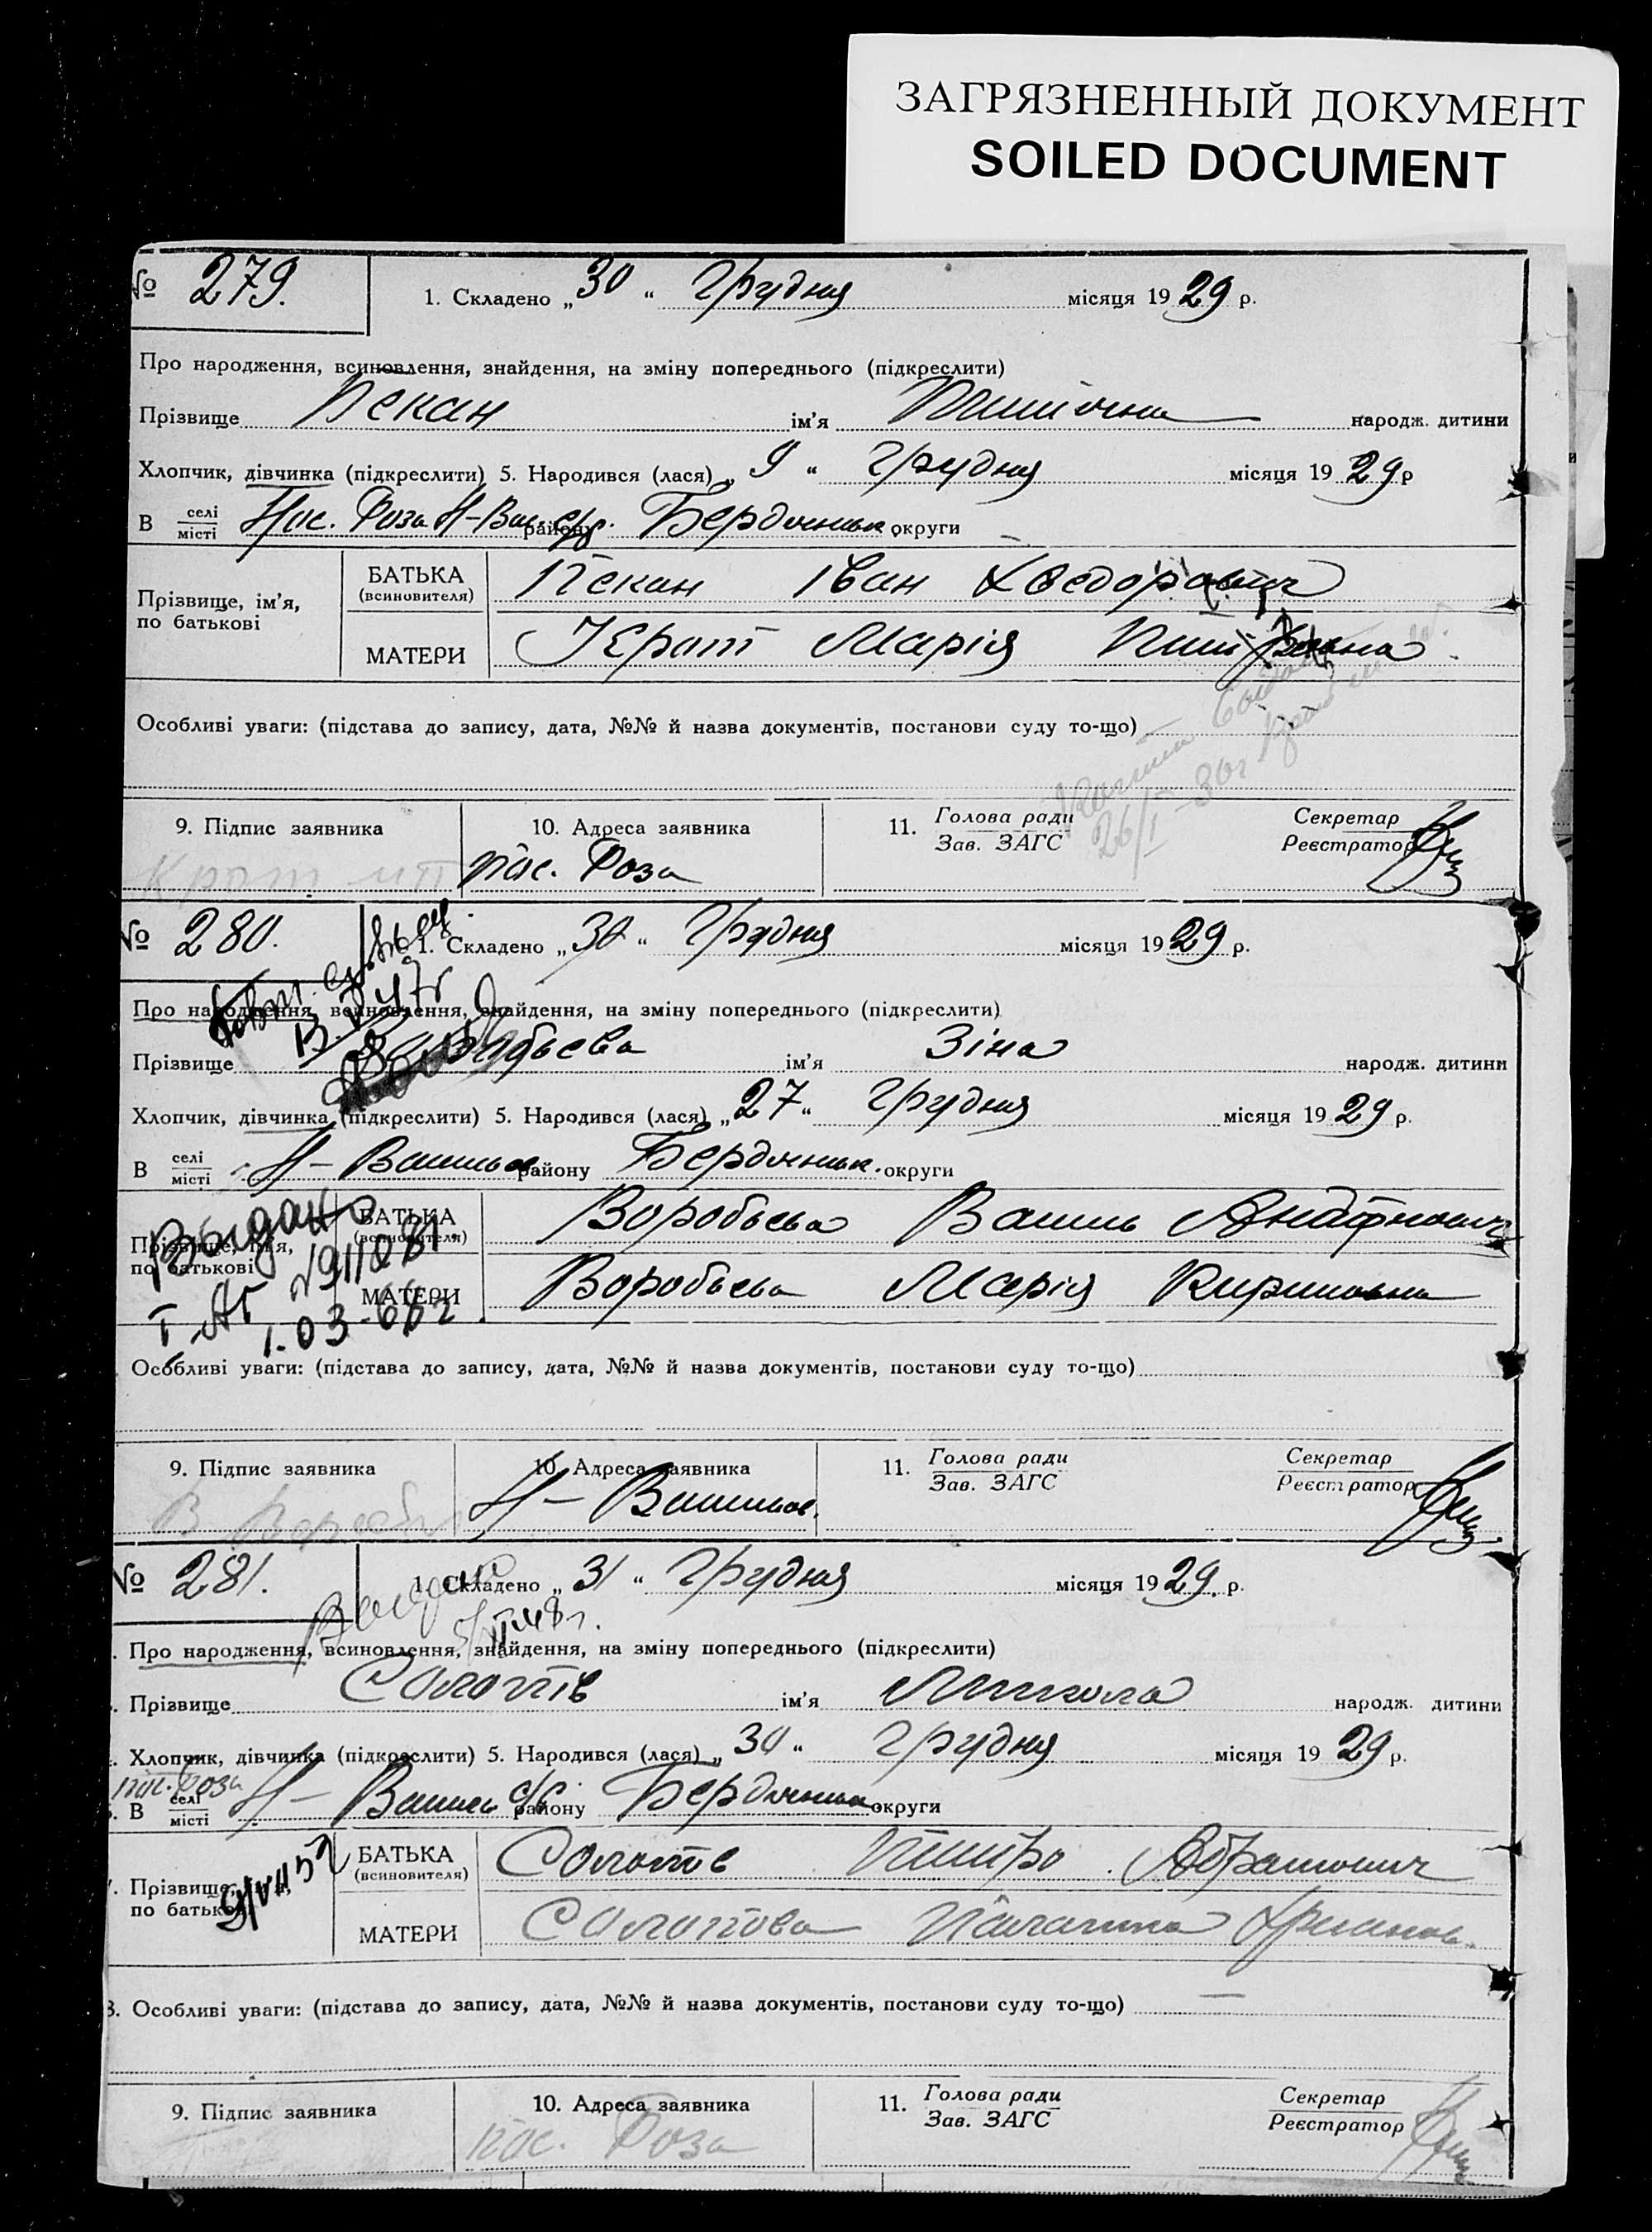 ЗАГРЯЗНЕННЫЙ ДОКУМЕНТ
SOILED DOCUMENT
№ 279. 1. Складено „30“ Грудня місяця 1929 р.
Про народження, всиновлення, знайдення, на зміну попереднього (підкреслити)
Прізвище Пекан ім'я народж. дитини
Хлопчик, дівчинка (підкреслити) 5. Народився (лася) „9“ Грудня місяця 1929 р
В селі місті Пос. Роза Н-Вас. с/р. району Бердянськ округи
Прізвище, ім'я, по батькові БАТЬКА (всиновителя) Пекан Іван Хведорович
МАТЕРИ Марія
Особливі уваги: (підстава до запису, дата, №№ й назва документів, постанови суду то-що)
26/I-30г
9. Підпис заявника 10. Адреса заявника 11. Голова ради Зав. ЗАГС Секретар Реєстратор
Крот пос. Роза
№ 280. 1. Складено „30“ Грудня місяця 1929 р.
Про народження, всиновлення, знайдення, на зміну попереднього (підкреслити)
Прізвище Воробьева ім'я Зіна народж. дитини
Хлопчик, дівчинка (підкреслити) 5. Народився (лася) „27“ Грудня місяця 1929 р.
В селі місті Н-Васильев району Бердянськ. округи
Прізвище, ім'я, по батькові БАТЬКА (всиновителя) Воробьева Василь
МАТЕРИ Воробьева Марія Кириловна
Выдано
1.03-66г
Особливі уваги: (підстава до запису, дата, №№ й назва документів, постанови суду то-що)
9. Підпис заявника 10. Адреса заявника 11. Голова ради Зав. ЗАГС Секретар Реєстратор
В Воробьев Н-Васильев.
№ 281. 1. Складено „31“ Грудня місяця 1929 р.
Выдано
Про народження, всиновлення, знайдення, на зміну попереднього (підкреслити)
Прізвище Солотів ім'я Микола народж. дитини
Хлопчик, дівчинка (підкреслити) 5. Народився (лася) „30“ Грудня місяця 1929 р.
пос. Роза
В селі місті Н-Васил с/р. району Бердянськ округи
Прізвище, ім'я, по батькові БАТЬКА (всиновителя) Солотів Абрамович
МАТЕРИ Солотова
8. Особливі уваги: (підстава до запису, дата, №№ й назва документів, постанови суду то-що)
9. Підпис заявника 10. Адреса заявника 11. Голова ради Зав. ЗАГС Секретар Реєстратор
пос. Роза